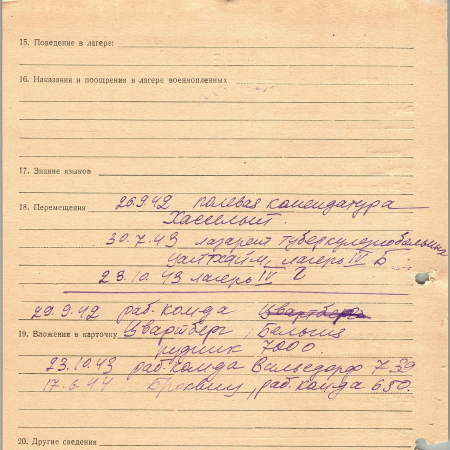 15. Поведение в лагере:
16. Наказания и поощрения в лагере военнопленных
17. Знание языков
18. Перемещения 26.9.42 полевая комендатура
Хассельт.
30.7.43 лазарет туберкулезнобольных
лагерь IV Б
23.10.43 лагерь IV Г
29.9.42 раб. ком-да Цвартберг
19. Вложение в карточку Цвартберг, Бельгия
рудник 7000.
23.10.43 раб. ком-да Вильсдорф 739
17.6.44 Броквиц, раб. ком-да 650.
20. Другие сведения